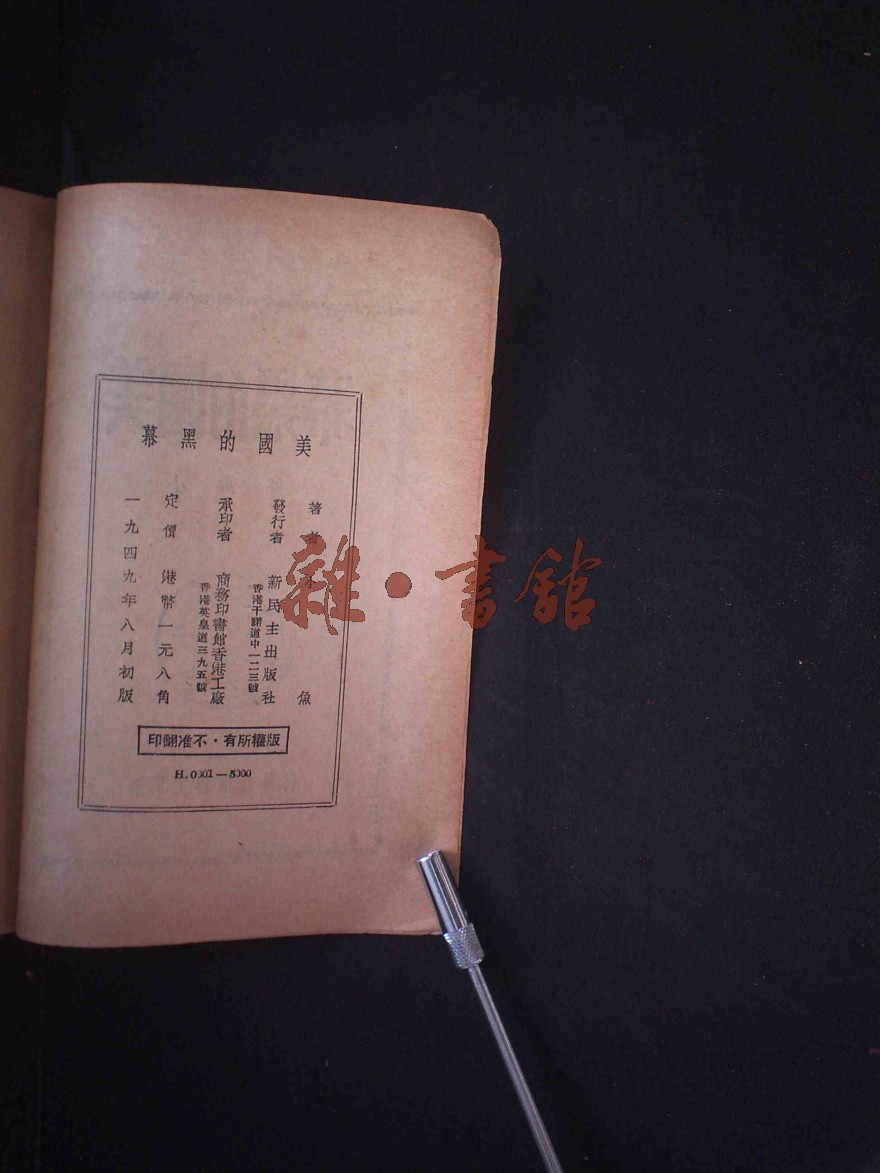 美國的黑幕
著者 小魚
發行者 新民主出版社
香港干諾道中一二三號
承印者 商務印書館香港工廠
香港英皇道三九五號
定價 港幣一元八角
一九四九年八月初版
版權所有・不准翻印
H.0001—5000
雜・書館